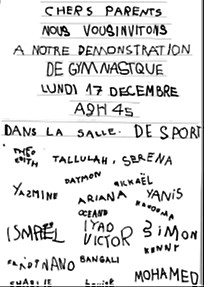 CHERS PARENTS
NOUS VOUSINVITONS
A NOTRE DEMONSTRATION
DE GYMNASTQUE
LUNDI 17 DECEMBRE
A9H 45
DANS LA SALLE. DE SPORT
THÉO
EDITH TALLULAH, SERENA
DAYMON MICKAËL
YAZMINE ARIANA YANIS
OCEANO
ISMAËL IYAD SIMON
VICTOR KENNY
BANGALI
MOHAMED
CHARLIE LOUISE